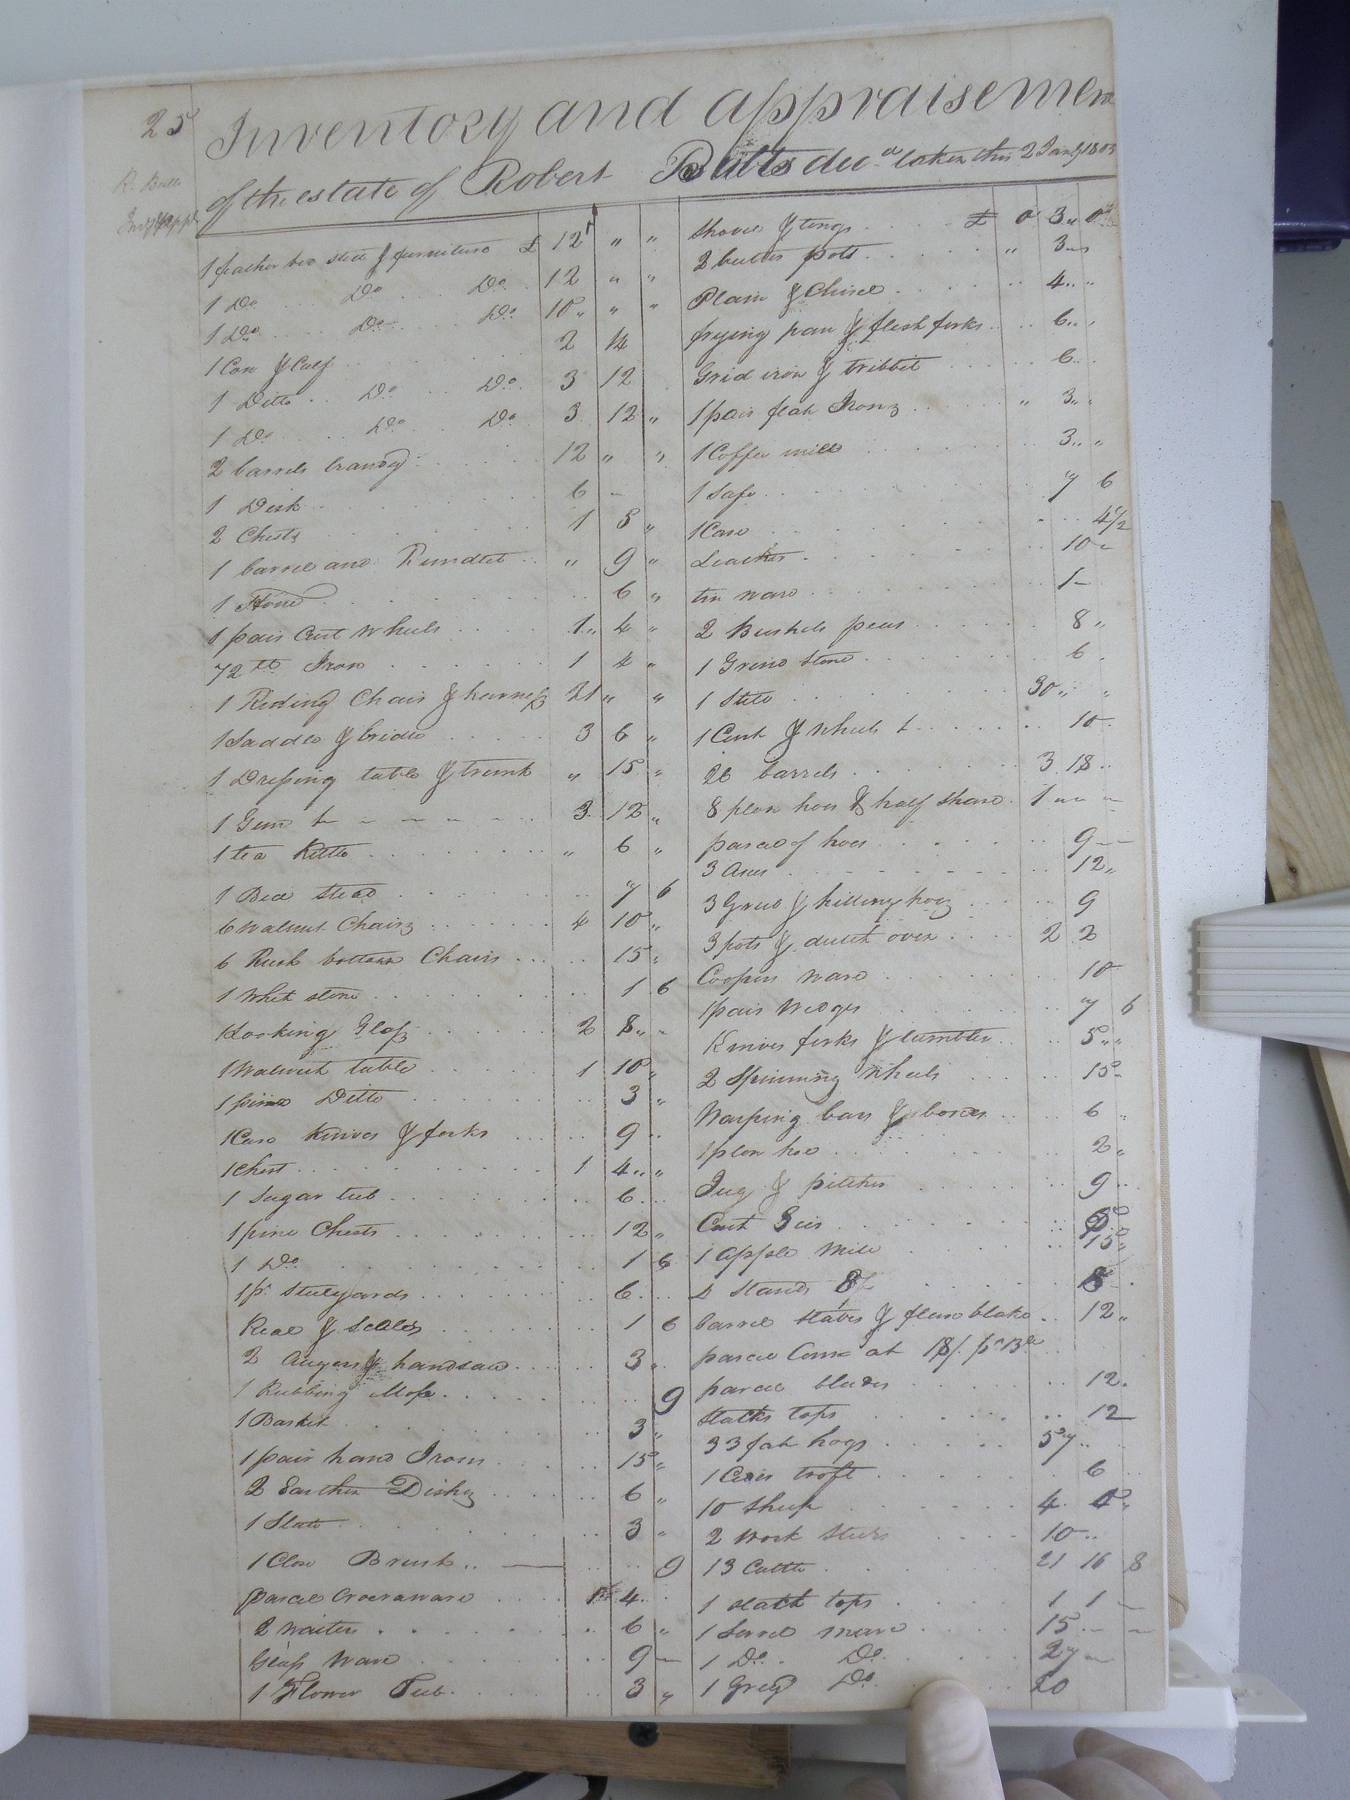 25
Inventory and appraisement
of the estate of Robert Butts decd taken this 2 Jany 1803
R. Butts
Inv & app
1 feather bed sted & furniture £ 12 " "
1 Do Do Do 12 " "
1 Do Do Do 10 " "
1 Cow & Calf 2 14
1 Ditto Do Do 3 12
1 Do Do Do 3 12 "
2 barrels brandy 12 " "
1 Desk 6 -
2 Chests 1 5 "
1 barrel and Rundlet " 9 "
1 6 "
1 pair Cart Wheels 1 " 4 "
72 lb Iron 1 4 "
1 Riding Chair & harness 21 " "
1 Saddle & bridle 3 6 "
1 Dressing table & trunk " 15 "
1 Gun 3 12 "
1 tea Kettle " 6 "
1 Bed sted 7 6
6 Walnut Chairs 4 10 "
6 Rush bottom Chairs 15 "
1 Whet stone 1 6
1 Looking Glass 2 8 "
1 Walnut table 1 10 "
1 pine Ditto 3 "
1 Case Knives & forks 9
1 Chest 1 4 " "
1 Sugar tub 6
1 pine Chests 12 "
1 Do 1 6
1 pr Stilyards 6
& Scales 1 6
2 Augers & handsaw 3 "
1 Rubbing 9
1 Basket 3 "
1 pair hand Irons 15 "
2 Earthen Dishes 6 "
1 Slate 3 "
1 Close Brush 9
parcel Crocraware 4
2 Waiters 6 "
Glass Ware 9 -
1 Flower Tub 3 "
Shovel & tongs £ 0 3 " 0
2 butter pots " 3 "
Plain & Chisel 4 " "
frying pan & flesh forks 6 " "
Grid iron & tribbit 6
1 pair flat Irons " 3 " "
1 Coffee mill 3 " "
1 Safe 7 6
1 Case 4/2
Leather 10 -
tin ware 1 -
2 Bushels peas 8 "
1 Grind Stone 6
1 Still 30 " "
1 Cart & Wheels 10
26 barrels 3 18
8 plow hoes & half share 1 " " -
parcel of hoes 9 - -
3 Axes 12 "
3 Grub & hilling hoes 9
3 pots & dutch oven 2 2
Coopers Ware 10
1 pair Wedges 7 6
Knives forks & tumbler 5 " "
2 Spinning Wheels 15 -
Warping bars & boxes 6 "
1 plow hoe 2 "
Jug & pitcher 9
Cart Geer
1 Apple Mill 15 "
4 Stands 8/ 8
barrel staves & 12 "
parcel Corn at 18/ pr Bll
parcel blades 12
Stacks tops 12 -
33 fat hogs 57
troft 6
10 Sheep 4
2 Work Steers 10
13 Cattle 21 16 8
1 Stack tops 1 1 -
1 Sorrel mare 15 - -
1 Do Do 27 -
1 Grey Do 20